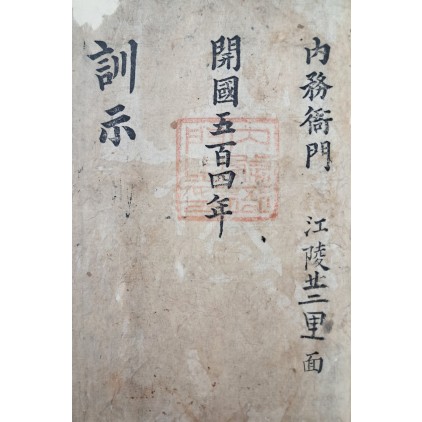 内務衙門 江陵廿二里面
開國五百四年
訓示